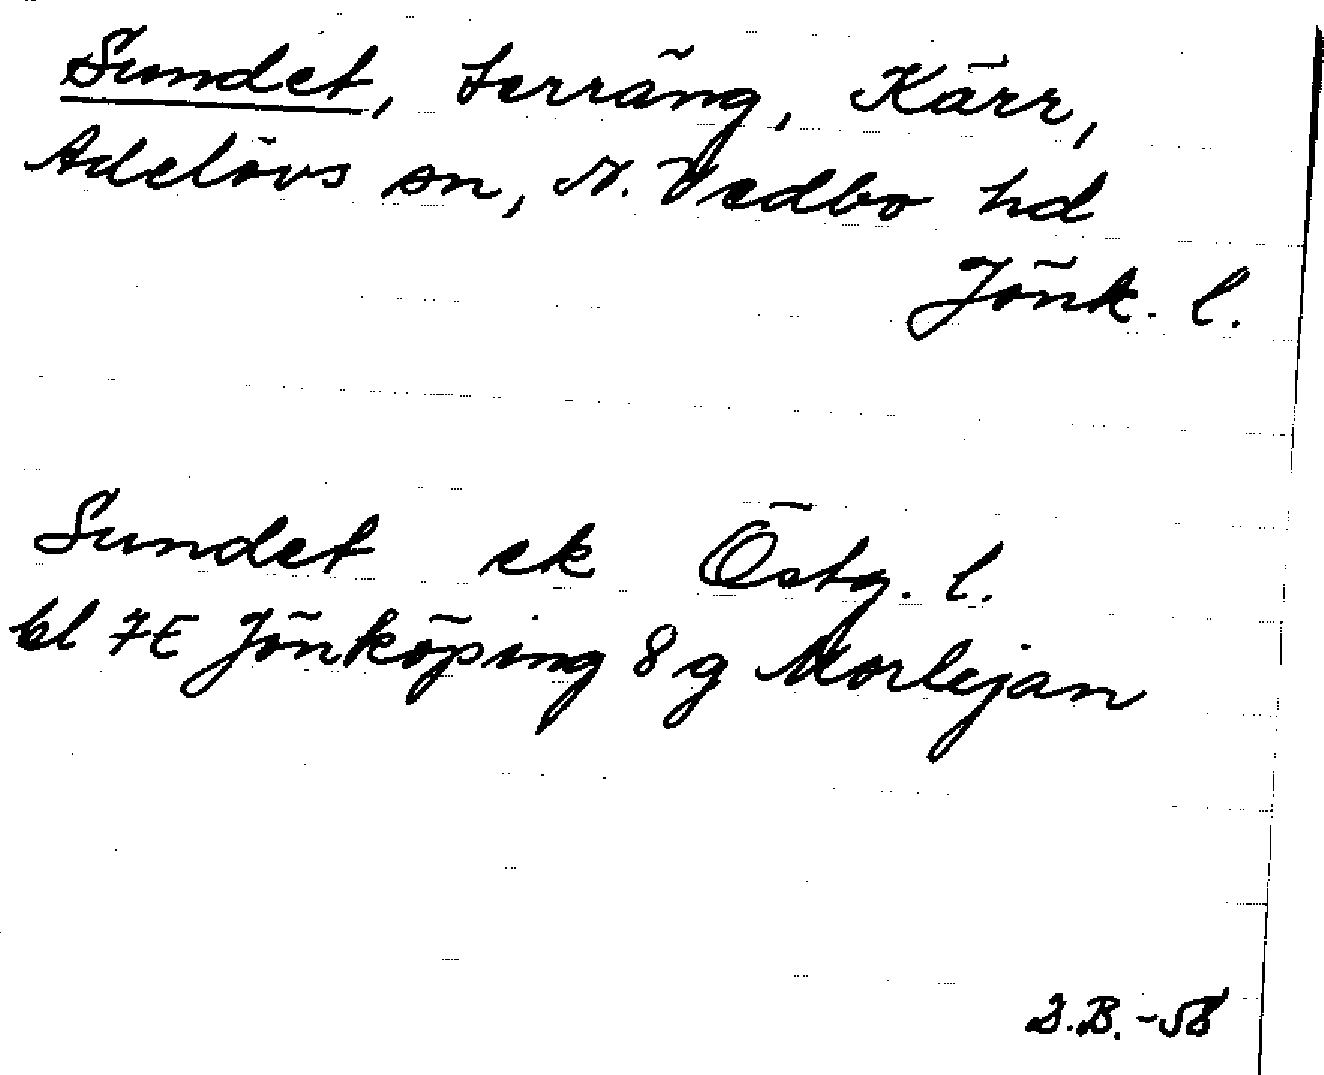 Sundet, terräng, Kärr,
Adelövs sn, N. Vedbo hd
Jönk. l.
Sundet ek Östg. l.
bl 7E Jönköping 8 g Morlejan
B.B. -58